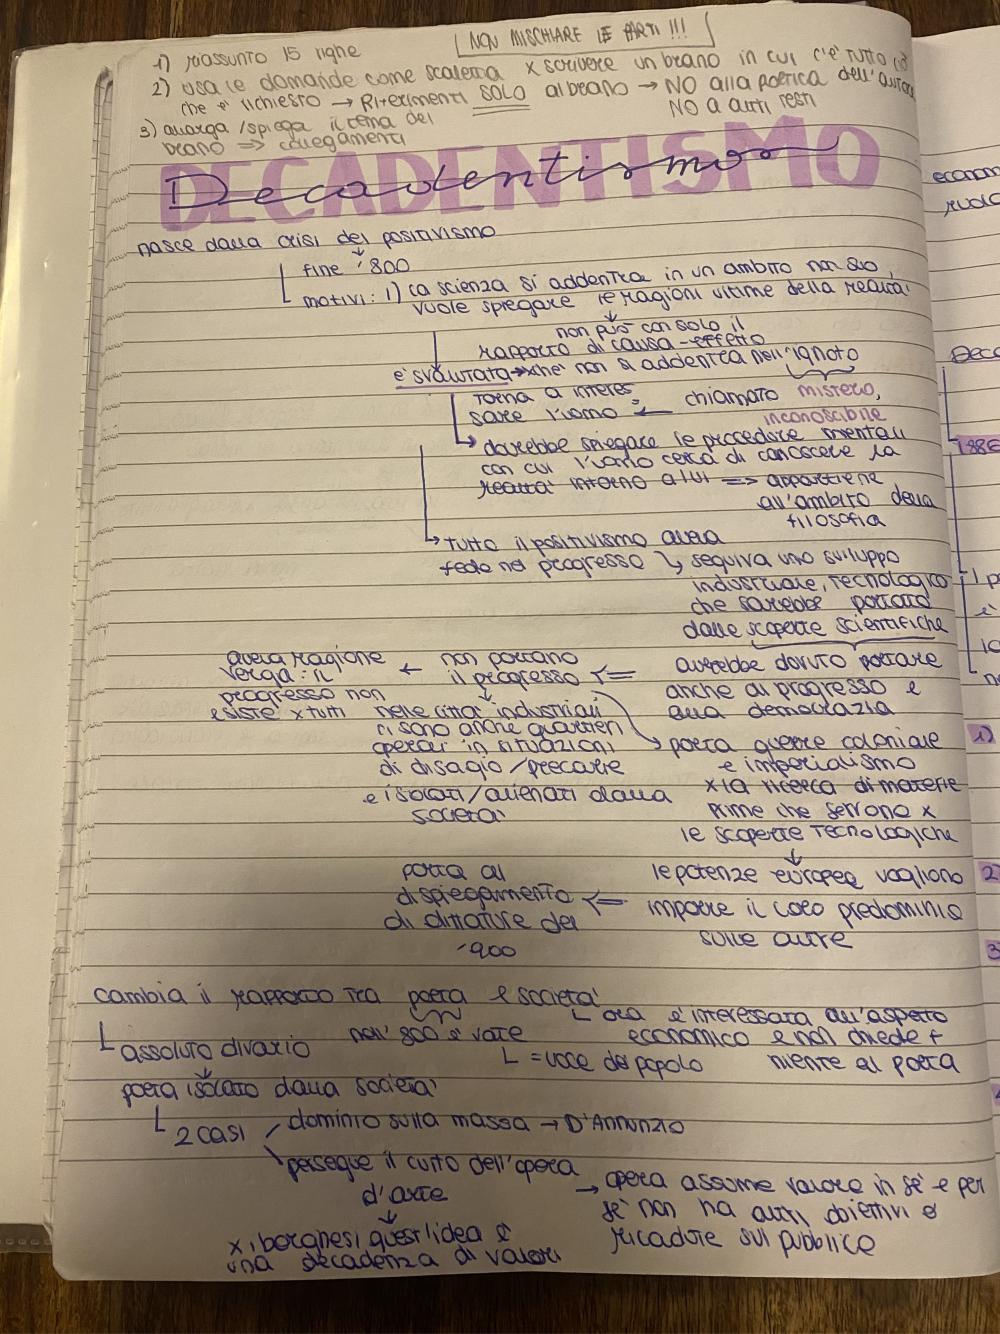 NON MISCHIARE LE PARTI!!!
1) riassunto 15 righe
2) usa le domande come scaletta x scrivere un brano in cui c'è tutto ciò
che è richiesto → Riferimenti SOLO al brano → NO alla poetica dell'autore
NO a altri testi
3) allarga/spiega il tema del
brano => collegamenti
DECADENTISMO
Decadentismo
nasce dalla crisi del positivismo
fine '800
motivi: 1) la scienza si addentra in un ambito non suo,
vuole spiegare le ragioni ultime della realtà
non può con solo il
rapporto di causa-effetto
è svalutata → xke' non si addentra nell'ignoto
chiamato mistero,
inconoscibile
torna a interes
sare l'uomo
dovrebbe spiegare le procedure mentali
con cui l'uomo cerca di conoscere la
realtà intorno a lui => appartiene
all'ambito della
filosofia
tutto il positivismo aveva
fede nel progresso → seguiva uno sviluppo
industriale, tecnologico
che sarebbe portato
dalle scoperte scientifiche
avrebbe dovuto portare
anche al progresso e
alla democrazia
non portano
il progresso
aveva ragione
Verga: il
progresso non
esiste x tutti
nelle città industriali
ci sono anche quartieri
operai in situazioni
di disagio/precarie
e isolati/alienati dalla
società
porta guerre coloniali
e imperialismo
x la ricerca di materie
prime che servono x
le scoperte tecnologiche
le potenze europee vogliono
imporre il loro predominio
sulle altre
porta al
dispiegamento
di dittature del
'900
cambia il rapporto tra poeta e società
ora è interessata all'aspetto
economico e non chiede +
niente al poeta
nell'800 è vate
= voce del popolo
assoluto divario
poeta isolato dalla società
2 casi
dominio sulla massa → D'Annunzio
persegue il culto dell'opera
d'arte
→ opera assume valore in sé e per
sé non ha altri obiettivi e
ricadute sul pubblico
x i borghesi quest'idea è
una decadenza di valori
econom
Deca
1886
1)
2)
3